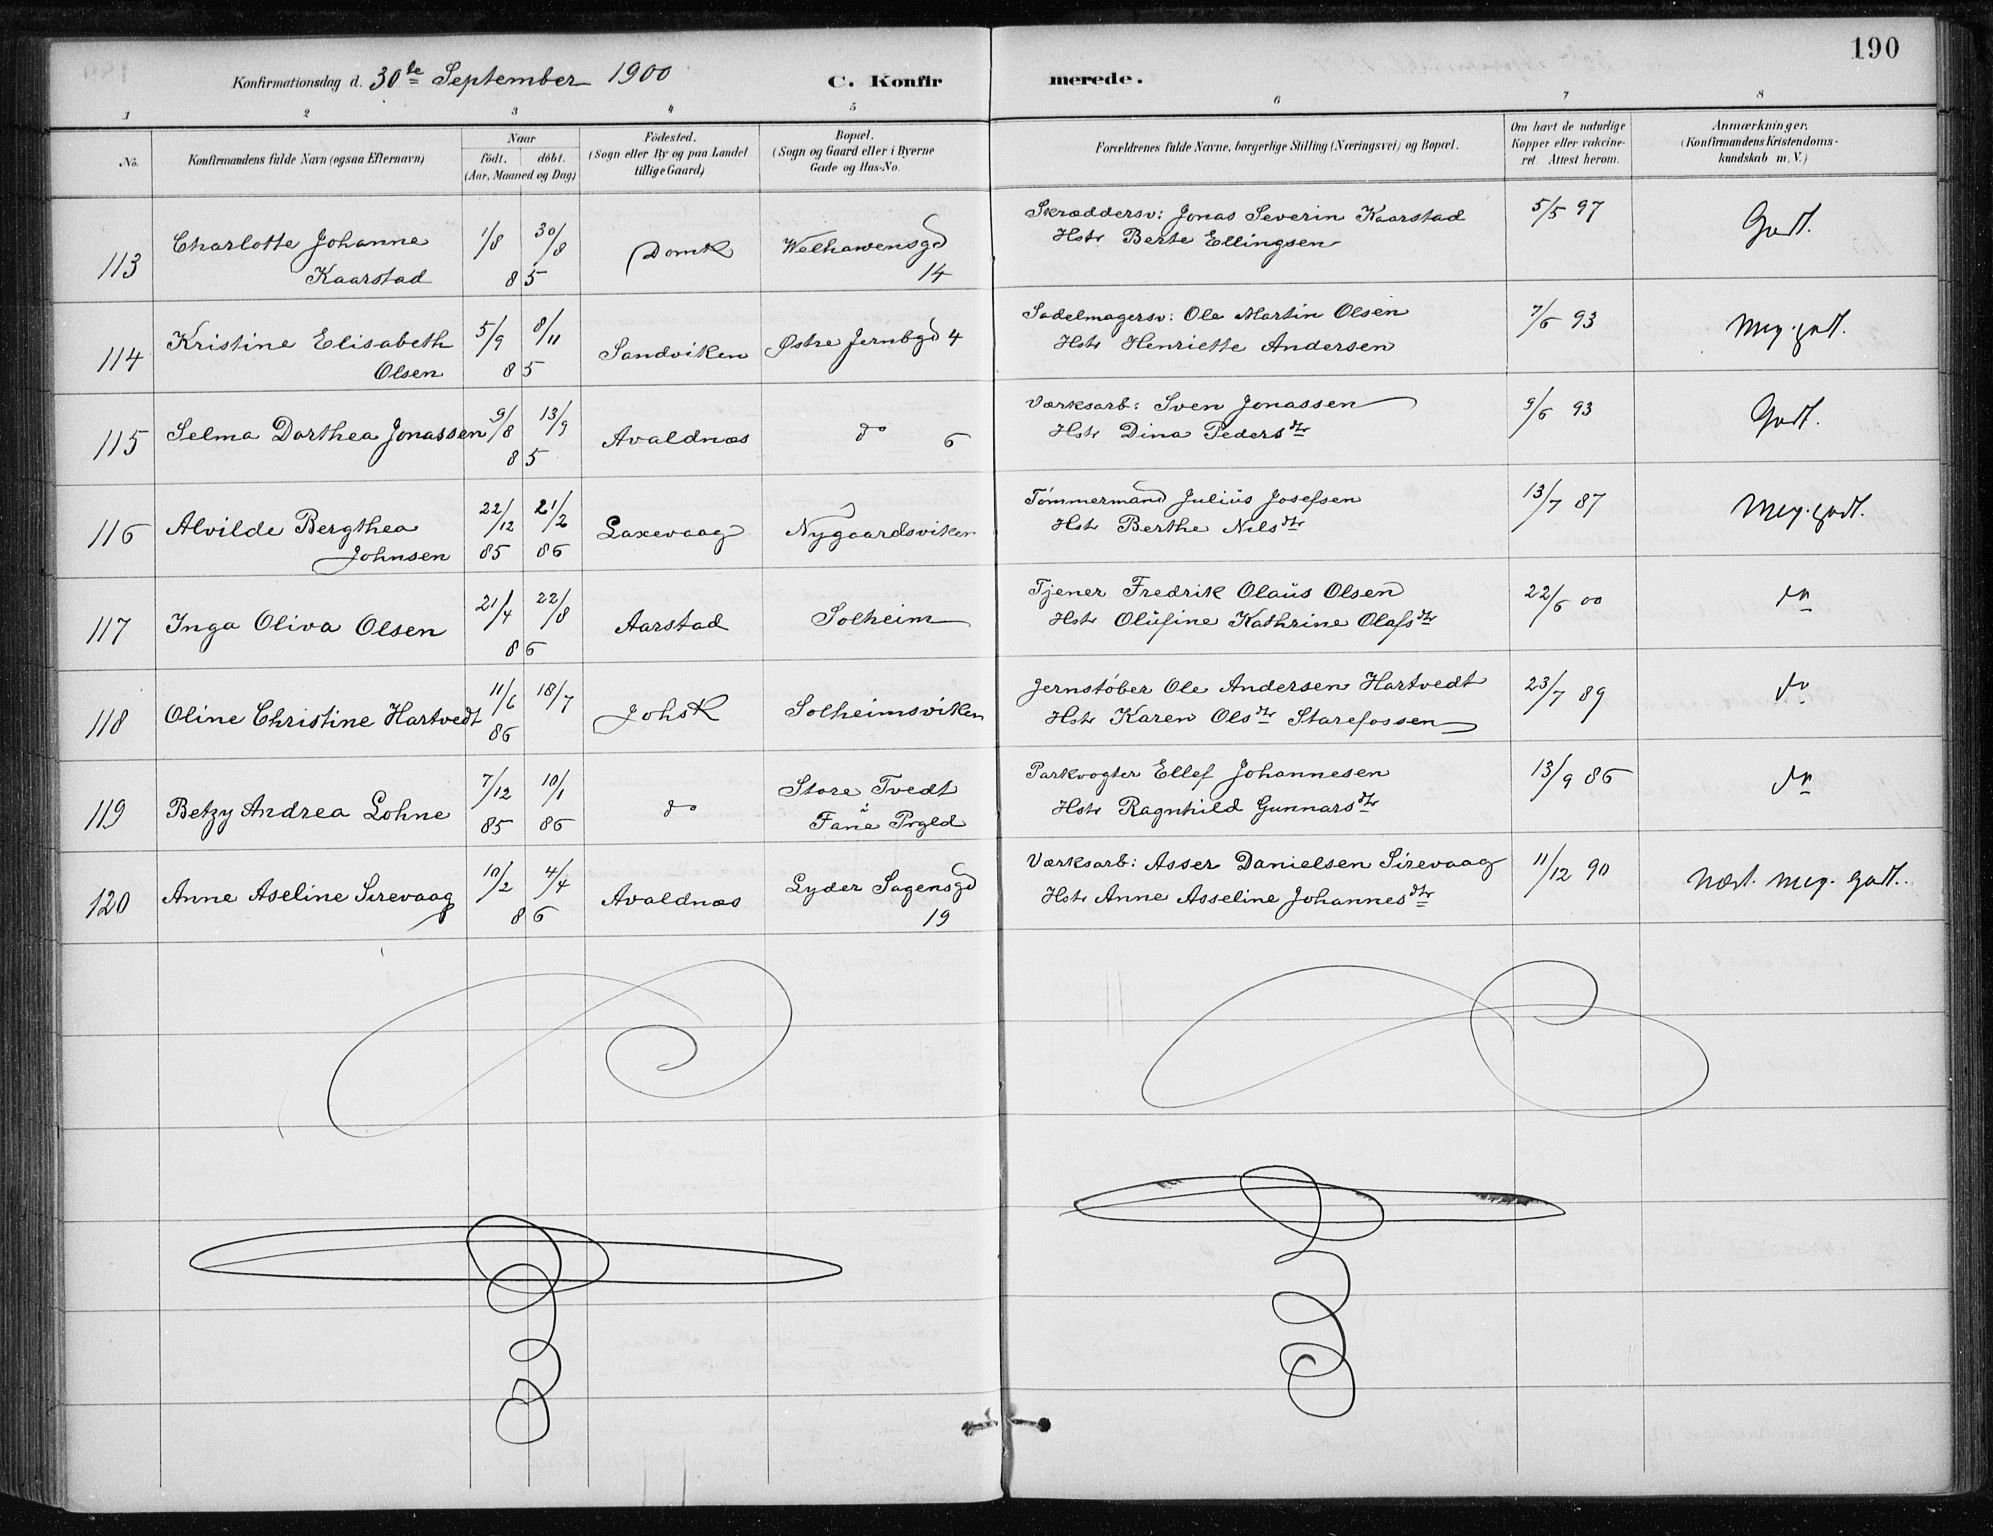 190
Konfirmationsdag d. 30te September 1900
C. Konfirmerede.
1 2 3 4 5 6 7 8
No.
Konfirmandens fulde Navn (ogsaa Efternavn)
Naar
födt. döbt.
(Aar, Maaned og Dag)
Födested.
(Sogn eller By og paa Landet
tillige Gaard)
Bopæl.
(Sogn og Gaard eller i Byerne
Gade og Hus-No.
Forældrenes fulde Navne, borgerlige Stilling (Næringsvei) og Bopæl.
Om havt de naturlige
Kopper eller vakcine-
ret. Attest herom.
Anmærkninger.
(Konfirmandens Kristendoms-
kundskab m. V.)
113 Charlotte Johanne 1/8 30/8 Domk Welhavensgd Skræddersv: Jonas Severin Kaarstad 5/5 97 Godt.
Kaarstad 85 14 Hstr Berte Ellingsen
114 Kristine Elisabeth 5/9 8/11 Sandviken Østre Jernbgd 4 Sadelmagersv: Ole Martin Olsen 7/6 93 Meg. godt.
Olsen 85 Hstr Henriette Andersen
115 Selma Dorthea Jonassen 9/8 13/9 Avaldnæs do 6 Værksarb: Sven Jonassen 9/6 93 Godt.
85 Hstr Dina Pedersdtr
116 Alvilde Bergthea 22/12 21/2 Laxevaag Nygaardsviken Tømmermand Julius Josefsen 13/7 87 Meg. godt.
Johnsen 85 86 Hstr Berthe Nilsdtr
117 Inga Oliva Olsen 21/4 22/8 Aarstad Solheim Tjener Fredrik Olaus Olsen 22/6 00 do
86 Hstr Olufine Kathrine Olafsdtr
118 Oline Christine Hartvedt 11/6 18/7 JohsK Solheimsviken Jernstøber Ole Andersen Hartvedt 23/7 89 do
86 Hstr Karen Olsdtr Starefossen
119 Betzy Andrea Lohne 7/12 10/1 do Store Tvedt Parkvogter Ellef Johannesen 13/9 86 do
85 86 Fane Prgld Hstr Ragnhild Gunnarsdtr
120 Anne Aseline Sirevaag 10/2 4/4 Avaldnæs Lyder Sagensgd Værksarb: Asser Danielsen Sirevaag 11/12 90 Næst. meg. godt.
86 19 Hstr Anne Asseline Johannesdtr